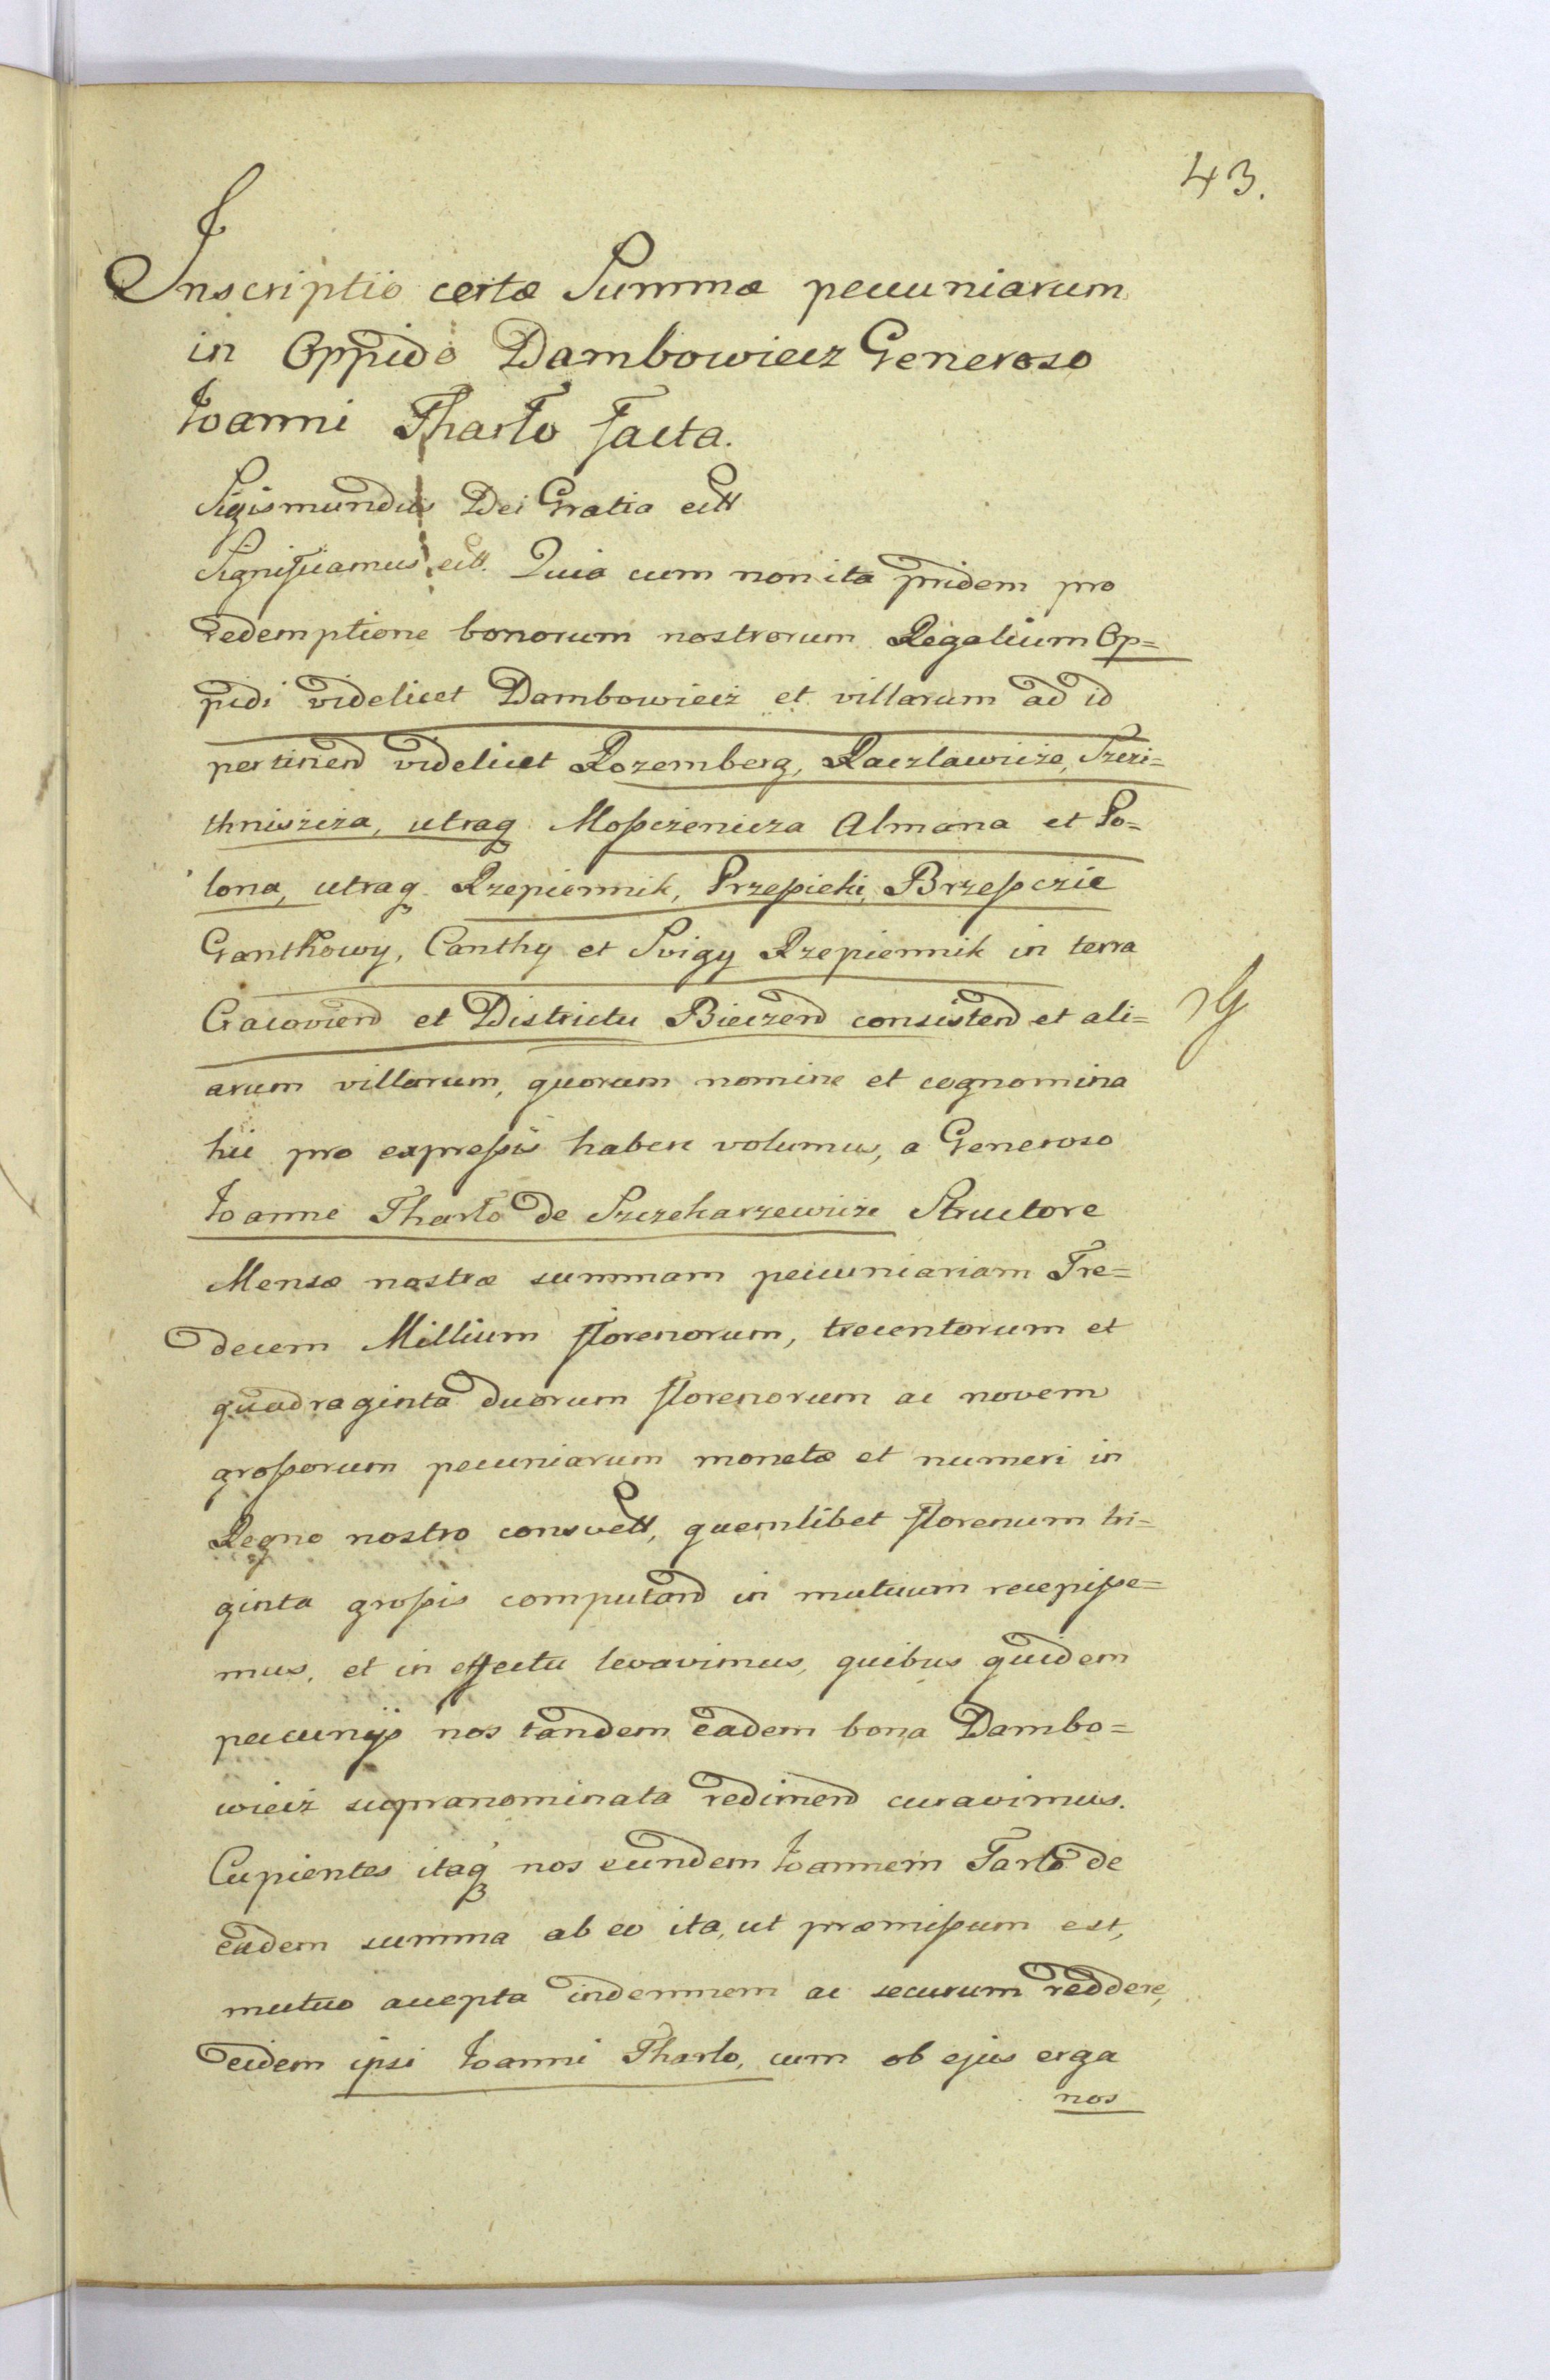 43.
Inscriptio certæ Summæ pecuniarum
in Oppido Dambowiecz Generoso
Ioanni Tharlo facta.
Sigismundus Dei Gratia ett
Significamus ett. Quia cum non ita pridem pro
redemptione bonorum nostrorum Regalium Op=
pidi videlicet Dambowiecz et villarum ad id
pertinend videlicet Rozemberg, Raczlawicze, Trzci=
thniszcza, utraq Mosczenicza Almana et Po=
lona, utraq Rzepiennik, Przesieki, Brzesczie
Ganthowy, Canthy et Svigy Rzepiennik in terra
Cracoviend et Districtu Bieczend consistend et ali=
arum villarum, quorum nomine et cognomina
hic pro expressis habere volumus, a Generoso
Ioanne Tharlo de Szczekarzewicze Structore
Mensæ nostræ summam pecuniariam Tre=
decem Millium florenorum, trecentorum et
quadraginta duorum florenorum ac novem
grossorum pecuniarum monetæ et numeri in
Regno nostro consvett, quemlibet florenum tri=
ginta grossis computand in mutuum recepisse=
mus, et in effectu levavimus, quibus quidem
pecunijs nos tandem eadem bona Dambo=
wiecz supranominata redimend curavimus.
Cupientes itaq nos eundem Ioannem Tarlo de
eadem summa ab eo ita, ut præmissum est,
mutuo accepta indemnem ac securum reddere,
eidem ipsi Ioanni Tharlo, cum ob ejus erga
nos